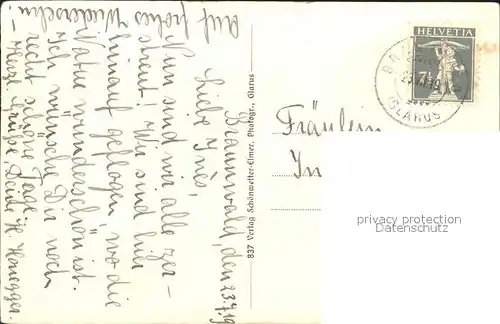 Braunwald, den 23.7.19
Liebe Ines,
Nun sind wir alle zer-
streut! Wir sind hier
hinauf geflogen, wo die
Natur wunderschön ist.
Ich wünsche Dir noch
recht schöne Tage.
Herzl. Grüße, Deine Honegger.
Auf frohes Wiedersehn
837 Verlag Schönwetter-Elmer, Photogr., Glarus
HELVETIA
7½
GLARUS
Fräulein
In
privacy protection
Datenschutz